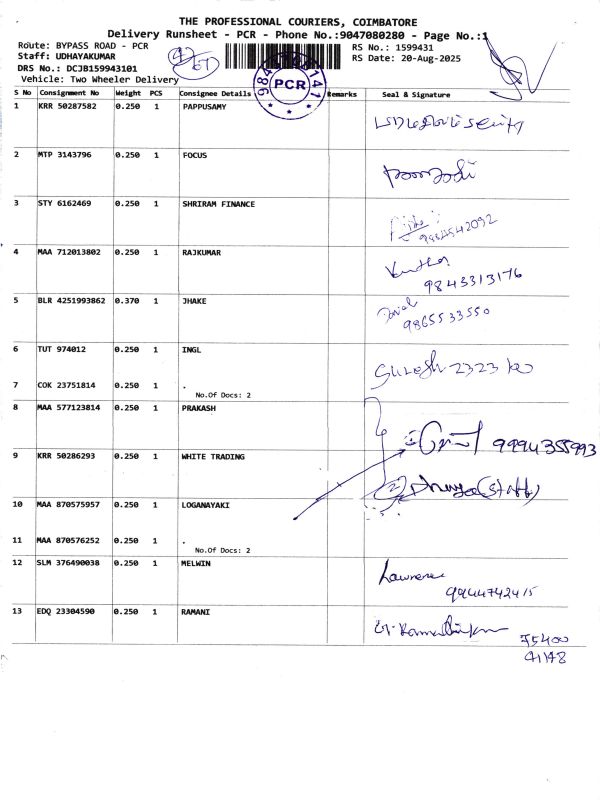 THE PROFESSIONAL COURIERS, COIMBATORE
Delivery Runsheet - PCR - Phone No.:9047080280 - Page No.:1
Route: BYPASS ROAD - PCR
RS No.: 1599431
Staff: UDHAYAKUMAR
RS Date: 20-Aug-2025
DRS No.: DCJB159943101
Vehicle: Two Wheeler Delivery
PCR
S No Consignment No Weight PCS Consignee Details Remarks Seal & Signature
1 KRR 50287582 0.250 1 PAPPUSAMY
2 MTP 3143796 0.250 1 FOCUS
3 STY 6162469 0.250 1 SHRIRAM FINANCE
4 MAA 712013802 0.250 1 RAJKUMAR
9843313176
5 BLR 4251993862 0.370 1 JHAKE
9865533550
6 TUT 974012 0.250 1 INGL
Suresh 2323
7 COK 23751814 0.250 1 .
No.Of Docs: 2
8 MAA 577123814 0.250 1 PRAKASH
9994355993
9 KRR 50286293 0.250 1 WHITE TRADING
10 MAA 870575957 0.250 1 LOGANAYAKI
11 MAA 870576252 0.250 1 .
No.Of Docs: 2
12 SLM 376490038 0.250 1 MELWIN
Lawrence
9944742415
13 EDQ 23304590 0.250 1 RAMANI
75400
41148